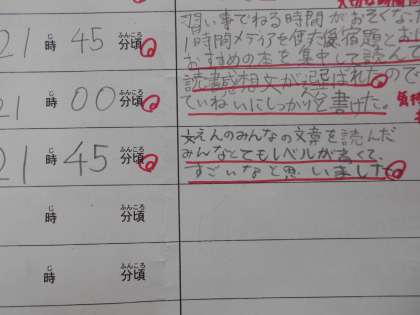 習い事でねる時間がおそくな
21時45分頃
1時間メディアを使た後宿題と
おすすめの本を集中して読んで
読書感想文が選ばれたので
21時00分頃
ていねいにしっかりと書けた。
文えんのみんなの文章を読んだ
21時45分頃
みんなとてもレベルが高くて、
すごいなと思いました
時分頃
時分頃